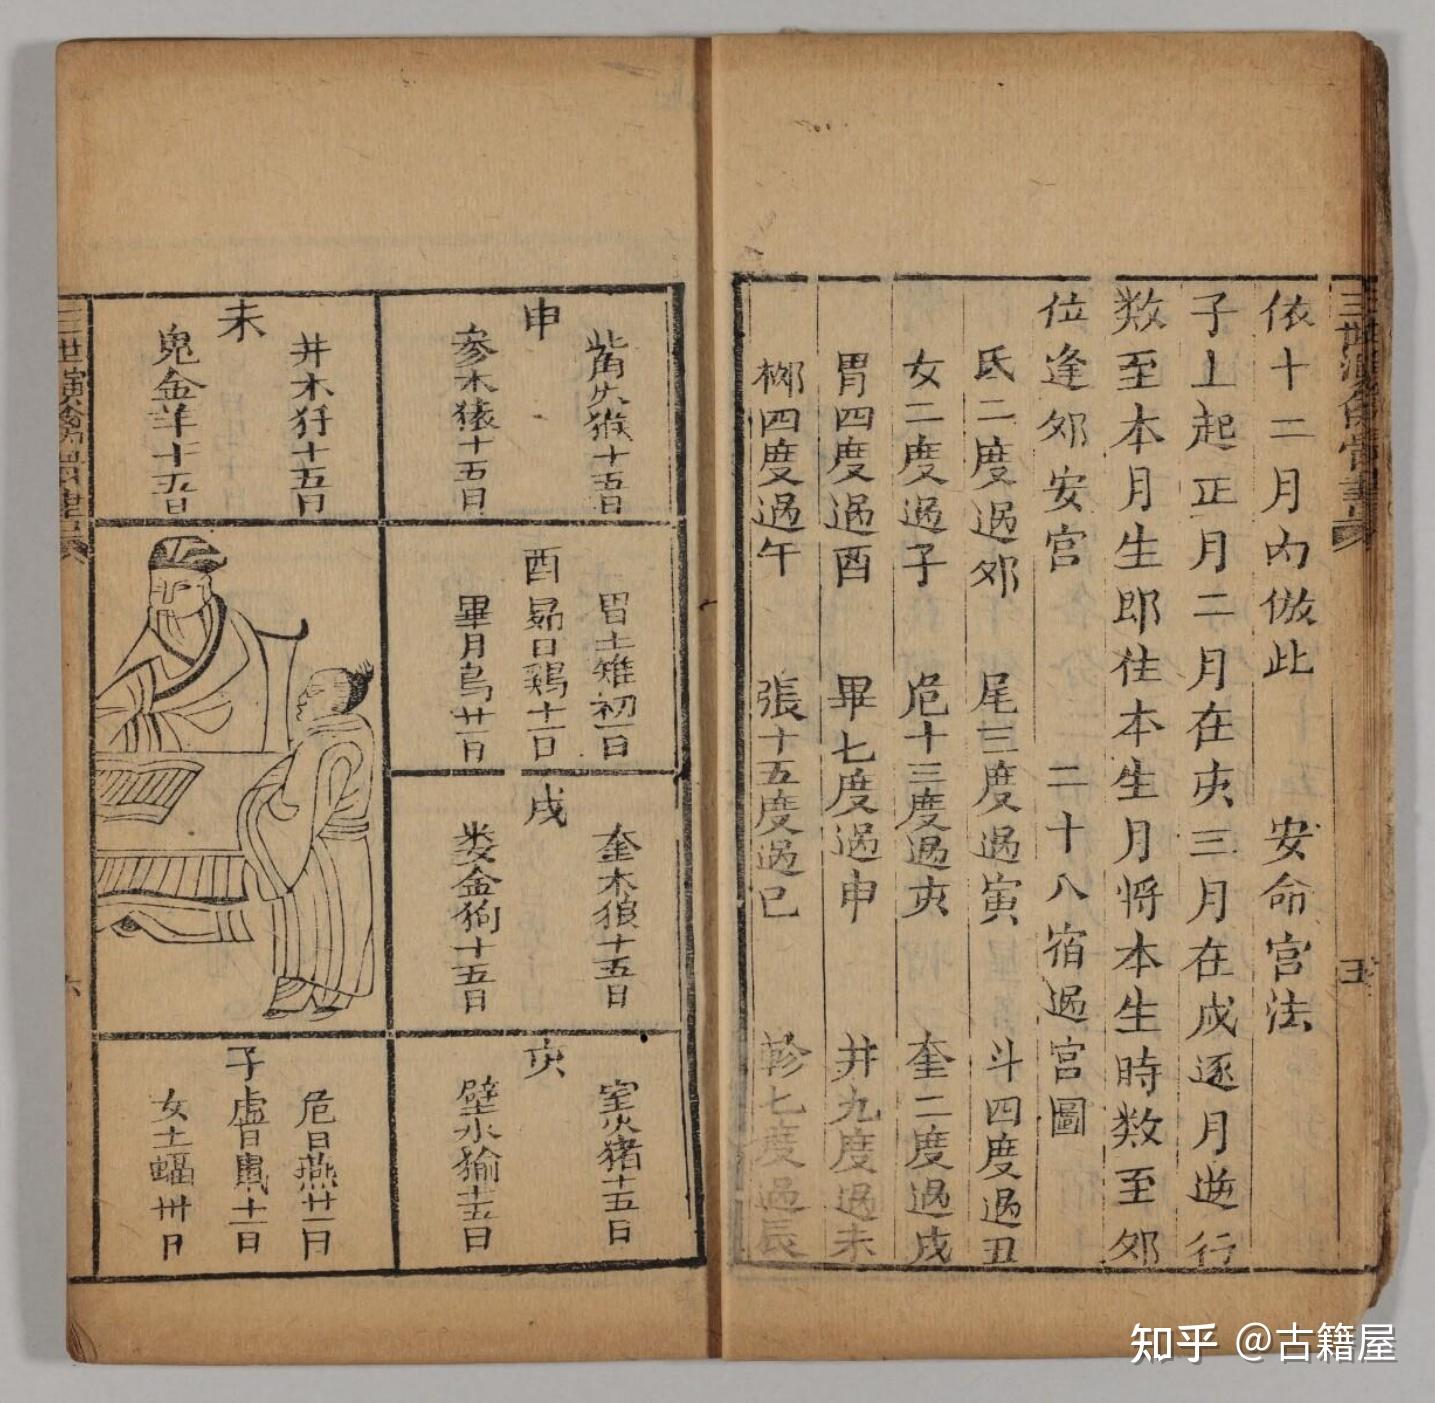 依十二月內倣此 安命宮法
子上起正月二月在亥三月在戌逐月逆行
数至本月生即住本生月将本生時数至卯
位逢卯安宮 二十八宿過宮圖
氐二度過卯 尾三度過寅 斗四度過丑
女二度過子 危十三度過亥 奎二度過戌
胃四度過酉 畢七度過申 井九度過未
柳四度過午 張十五度過巳 軫七度過辰
五
申
觜火猴十五日
参水猿十五日
未
井木犴十五日
鬼金羊十五日
酉
胃土雉初一日
昴日鷄十一日
畢月烏廿一日
戌
奎木狼十五日
婁金狗十五日
亥
室火猪十五日
壁水㺄十五日
子
危月燕廿一日
虛日鼠十一日
女土蝠卅日
六
知乎 @古籍屋